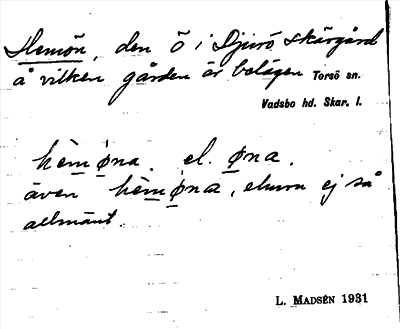 Hemön, den ö i Djurö skärgård
å vilken gården är belägen Torsö sn.
Vadsbo hd. Skar. l.
hèmǿna. el. øna.
även hèmǿna, ehuru ej så
allmänt.
L. MADSÉN 1931